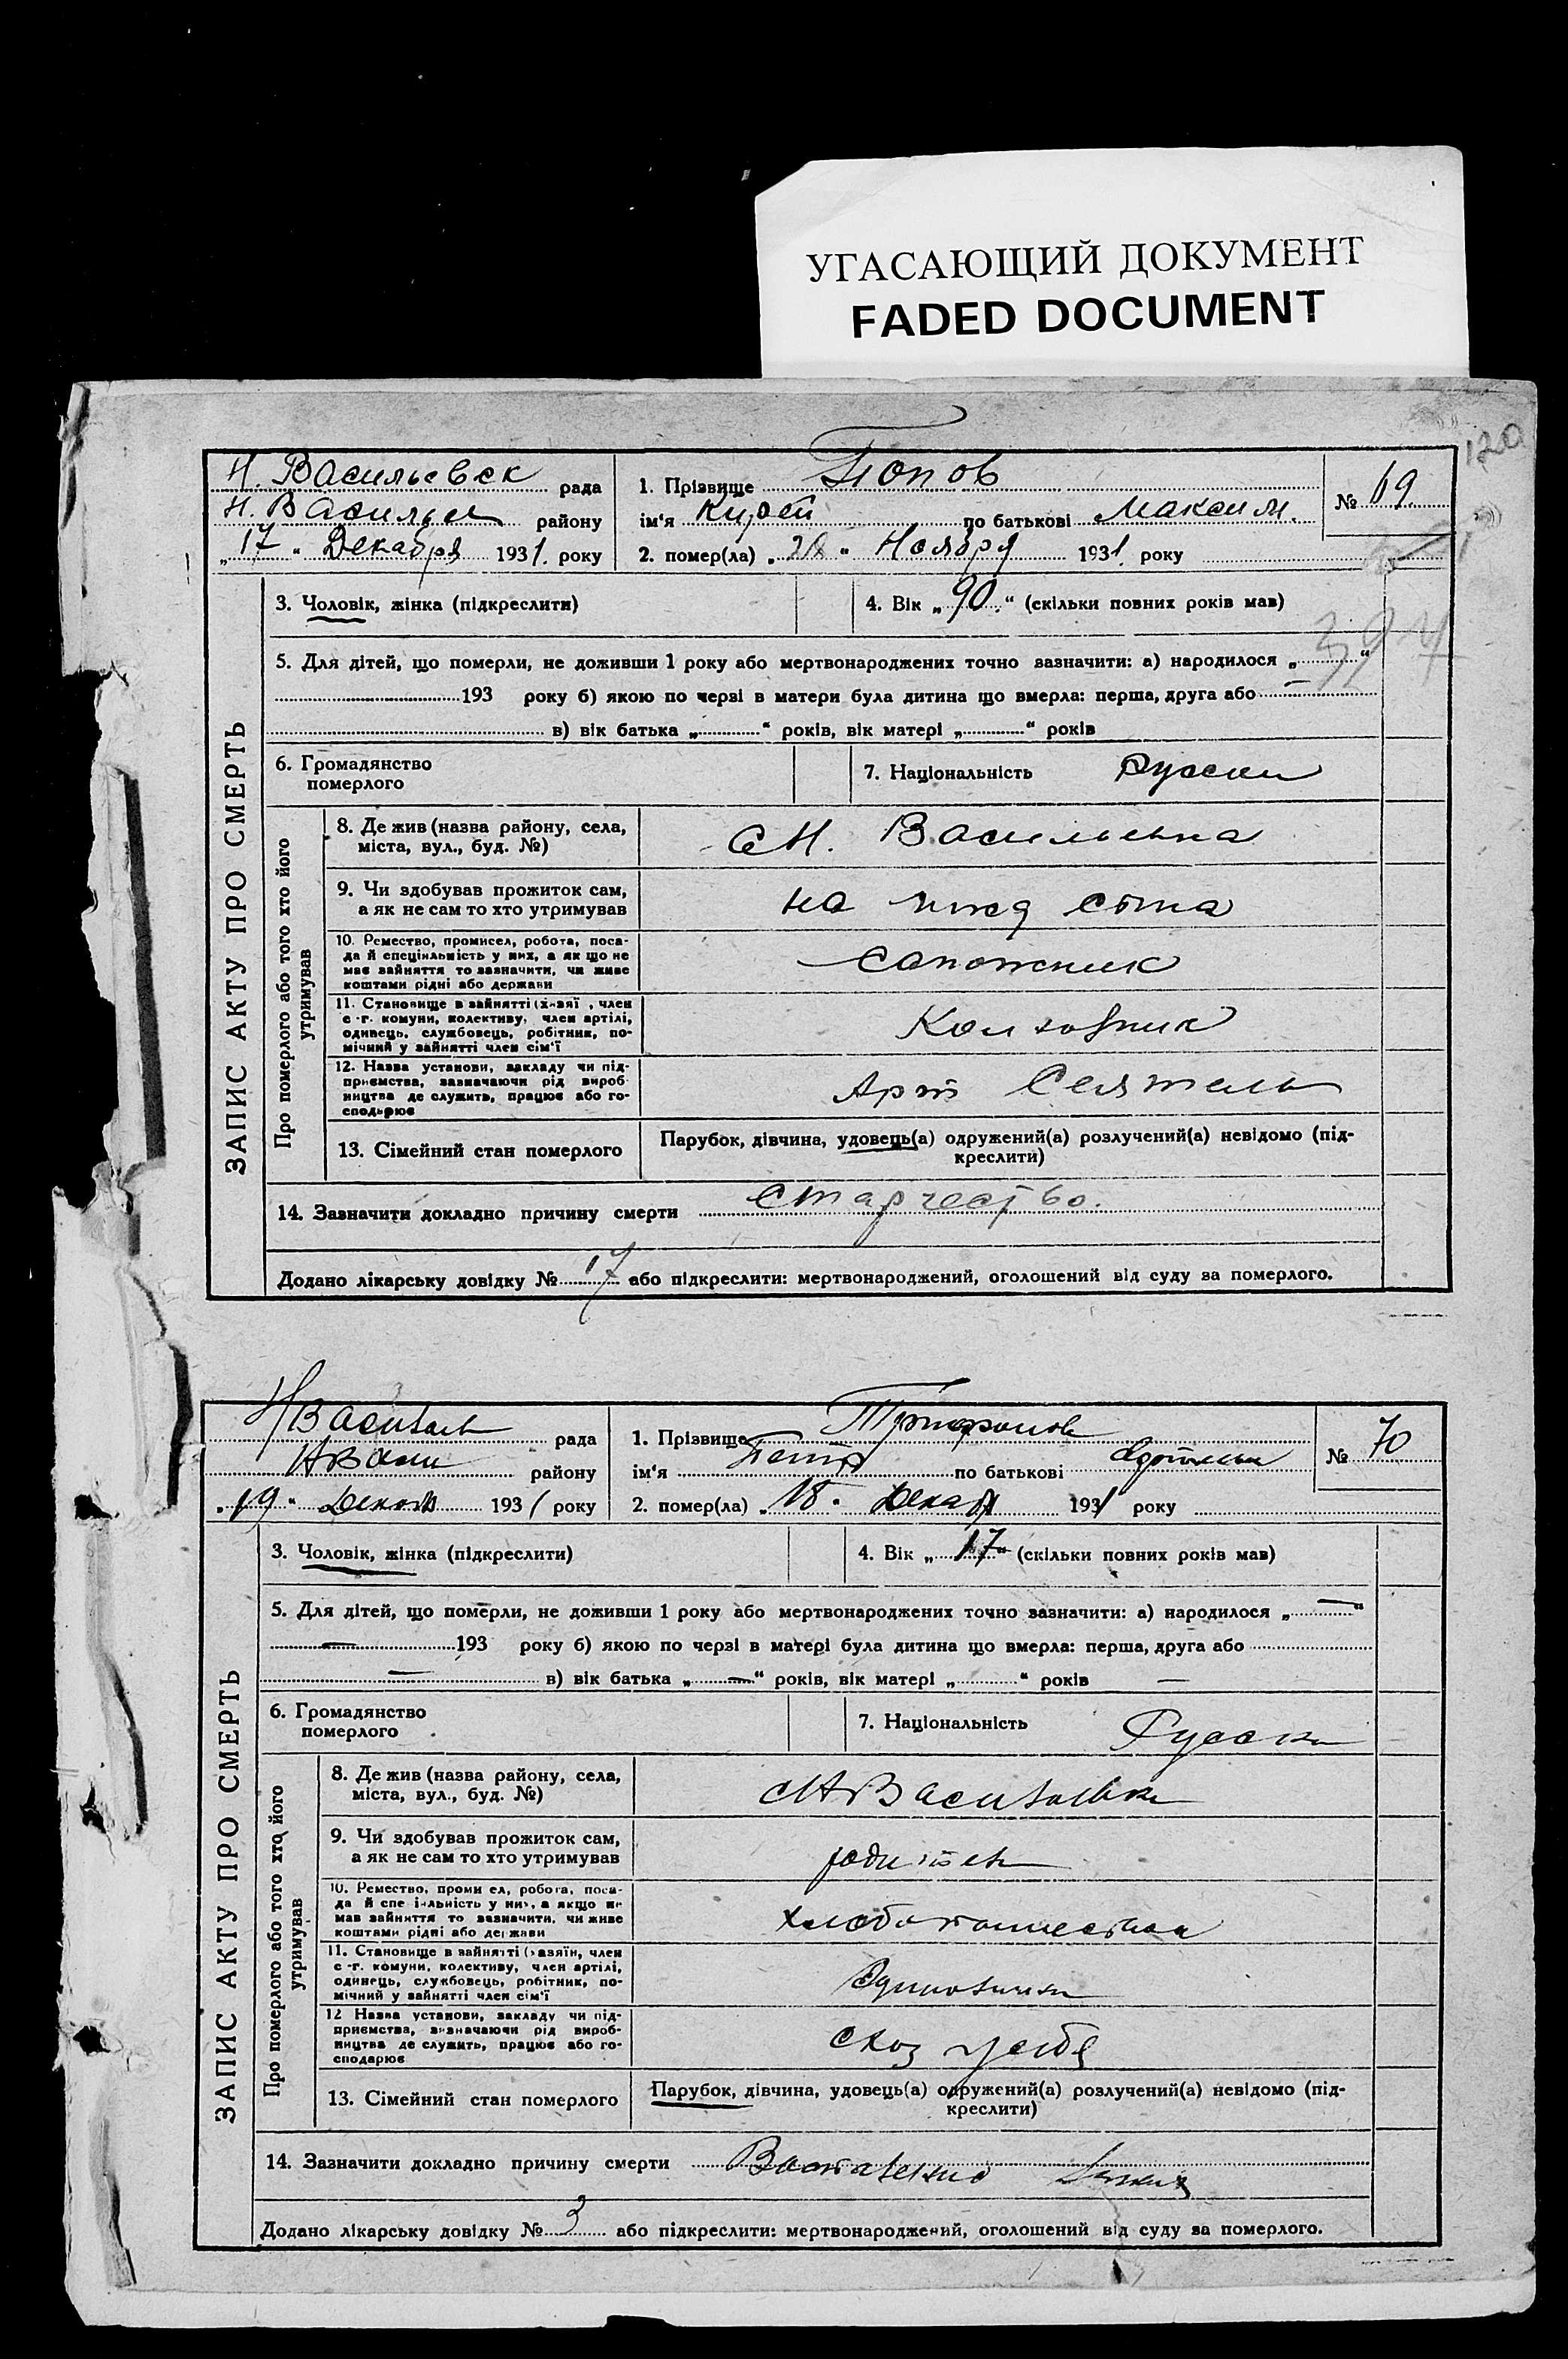 УГАСАЮЩИЙ ДОКУМЕНТ
FADED DOCUMENT
120
Н. Васильевск рада
Н. Васильев району
„17“ Декабря 1931. року
1. Прізвище Попов
ім'я по батькові Максим.
2. помер(ла) „ “ Ноября 1931. року
№ 69.
ЗАПИС АКТУ ПРО СМЕРТЬ
3. Чоловік, жінка (підкреслити)
4. Вік „90.“ (скільки повних років мав)
5. Для дітей, що померли, не доживши 1 року або мертвонароджених точно зазначити: а) народилося „ “
193 року б) якою по черзі в матери була дитина що вмерла: перша, друга або –
в) вік батька „ “ років, вік матері „ “ років
6. Громадянство
померлого
7. Національність Русски
Про померлого або того хто його
утримував
8. Де жив (назва району, села,
міста, вул., буд. №)
С Н. Васильевка
9. Чи здобував прожиток сам,
а як не сам то хто утримував
на
10. Ремество, промисел, робота, поса-
да й спеціяльність у них, а як що не
має зайняття то зазначити, чи живе
коштами рідні або держави
Сапожник
11. Становище в зайнятті (хазяї , член
с -г. комуни, колективу, член артілі,
одинець, службовець, робітник, по-
мічний у зайнятті член сім'ї
Колховник
12. Назва установи, закладу чи під-
приємства, зазначаючи рід вироб-
ництва де служить, працює або го-
сподарює
Арт Сеятель
13. Сімейний стан померлого
Парубок, дівчина, удовець(а) одружений(а) розлучений(а) невідомо (під-
креслити)
14. Зазначити докладно причину смерти старчество.
Додано лікарську довідку № 17 або підкреслити: мертвонароджений, оголошений від суду за померлого.
рада
району
„19“ 1931 року
1. Прізвище
ім'я Петр по батькові
2. помер(ла) „18“ Декаб 1931 року
№ 70
ЗАПИС АКТУ ПРО СМЕРТЬ
3. Чоловік, жінка (підкреслити)
4. Вік „17“ (скільки повних років мав)
5. Для дітей, що померли, не доживши 1 року або мертвонароджених точно зазначити: а) народилося „—“
— 193 року б) якою по черзі в матері була дитина що вмерла: перша, друга або
— в) вік батька „—“ років, вік матері „ “ років —
6. Громадянство
померлого
7. Національність Русски
Про померлого або того хто його
утримував
8. Де жив (назва району, села,
міста, вул., буд. №)
9. Чи здобував прожиток сам,
а як не сам то хто утримував
родители
10. Ремество, проми ел, робота, поса-
да й спе іяльність у них, а якщо не
мав зайняття то зазначити, чи живе
коштами рідні або держави
11. Становище в зайнятті (хазяїн, член
с -г. комуни, колективу, член артілі,
одинець, службовець, робітник, по-
мічний у зайнятті член сім'ї
12 Назва установи, закладу чи під-
приємства, зазначаючи рід вироб-
ництва де служить, працює або го-
сподарює
с хоз у себя
13. Сімейний стан померлого
Парубок, дівчина, удовець(а) одружений(а) розлучений(а) невідомо (під-
креслити)
14. Зазначити докладно причину смерти
Додано лікарську довідку № 3 або підкреслити: мертвонароджений, оголошений від суду за померлого.